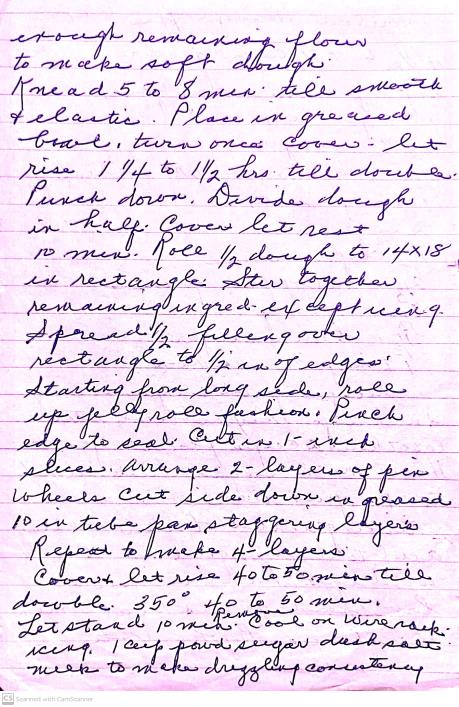 enough remaining flour
to make soft dough.
Knead 5 to 8 min. till smooth
& elastic. Place in greased
bowl, turn once cover - let
rise 1 1/4 to 1 1/2 hrs. till double.
Punch down. Divide dough
in half. Cover let rest
10 min. Role 1/2 dough to 14X18
in rectangle. Stir together
remaining ingred. except icing.
Spread 1/2 filling over
rectangle to 1/2 in of edges.
Starting from long side, roll
up jelly roll fashion. Pinch
edge to seal. Cut in 1-inch
slices. Arrange 2-layers of pin
wheels cut side down in greased
10 in tube pan staggering layers
Repeat to make 4-layers
Cover & let rise 40 to 50 min till
double. 350° 40 to 50 min.
Let stand 10 min. Remove. Cool on wire rack.
icing. 1 cup powd sugar dash salt
milk to make drizzling consistency
CS Scanned with CamScanner